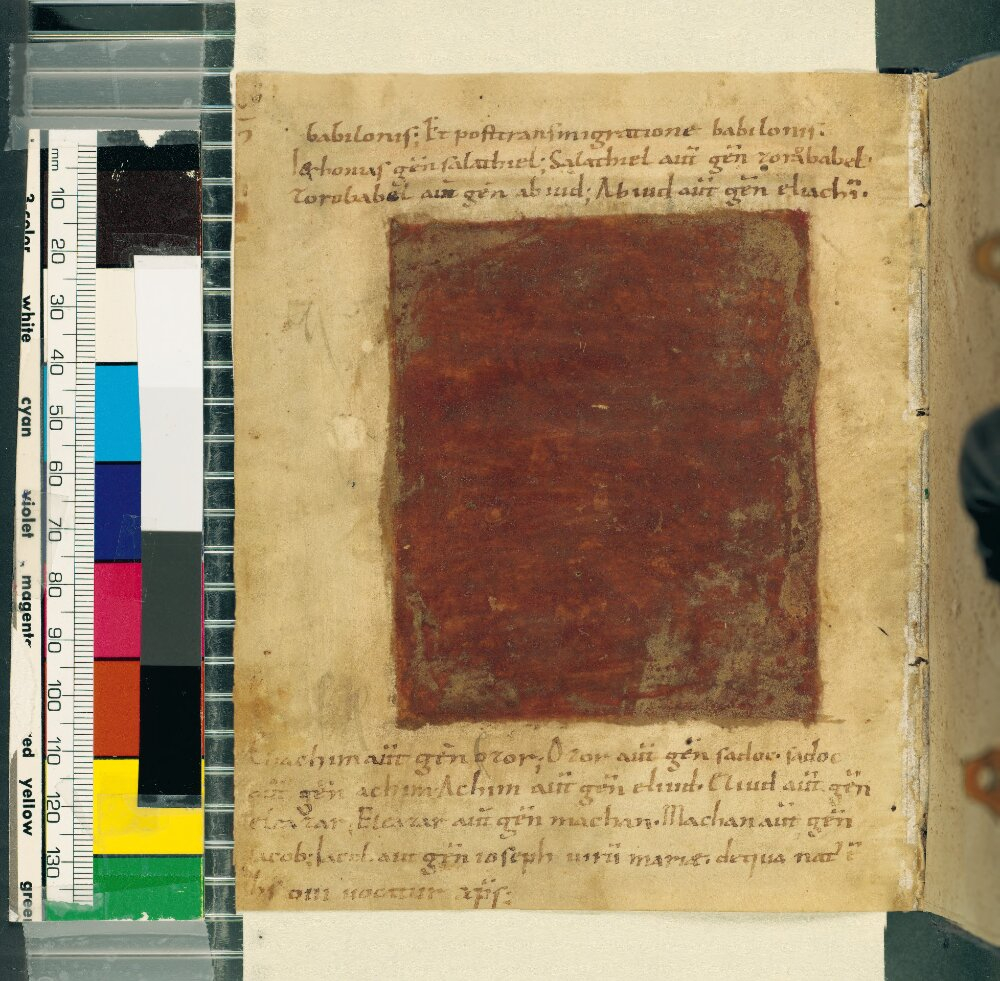 babilonis; Et posttransmigratione babilonis.
Iechonias gēn salathiel; Salathiel aūt gēn zorobabel.
Zorobabel aūt gēn abiud; Abiud aūt gēn eliachī.
Eliachim aūt gēn azor; Azor aūt gēn sadoc. sadoc
aūt gēn achim. Achim aūt gēn eliud. Eliud aūt gēn
eleazar; Eleazar aūt gēn machan. Machan aūt gēn
iacob; Iacob aūt gēn ioseph uirū marie. dequa nat' ē
ihs qui uocatur xp̄s;
mm 10 20 30 40 50 60 70 80 90 100 110 120 130
3-color white cyan violet magent yellow gree